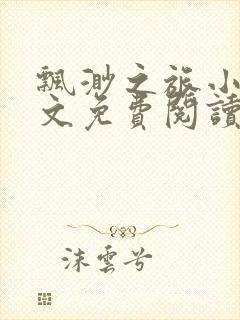 飄渺之旅小
文免費閱讀
沫雲兮